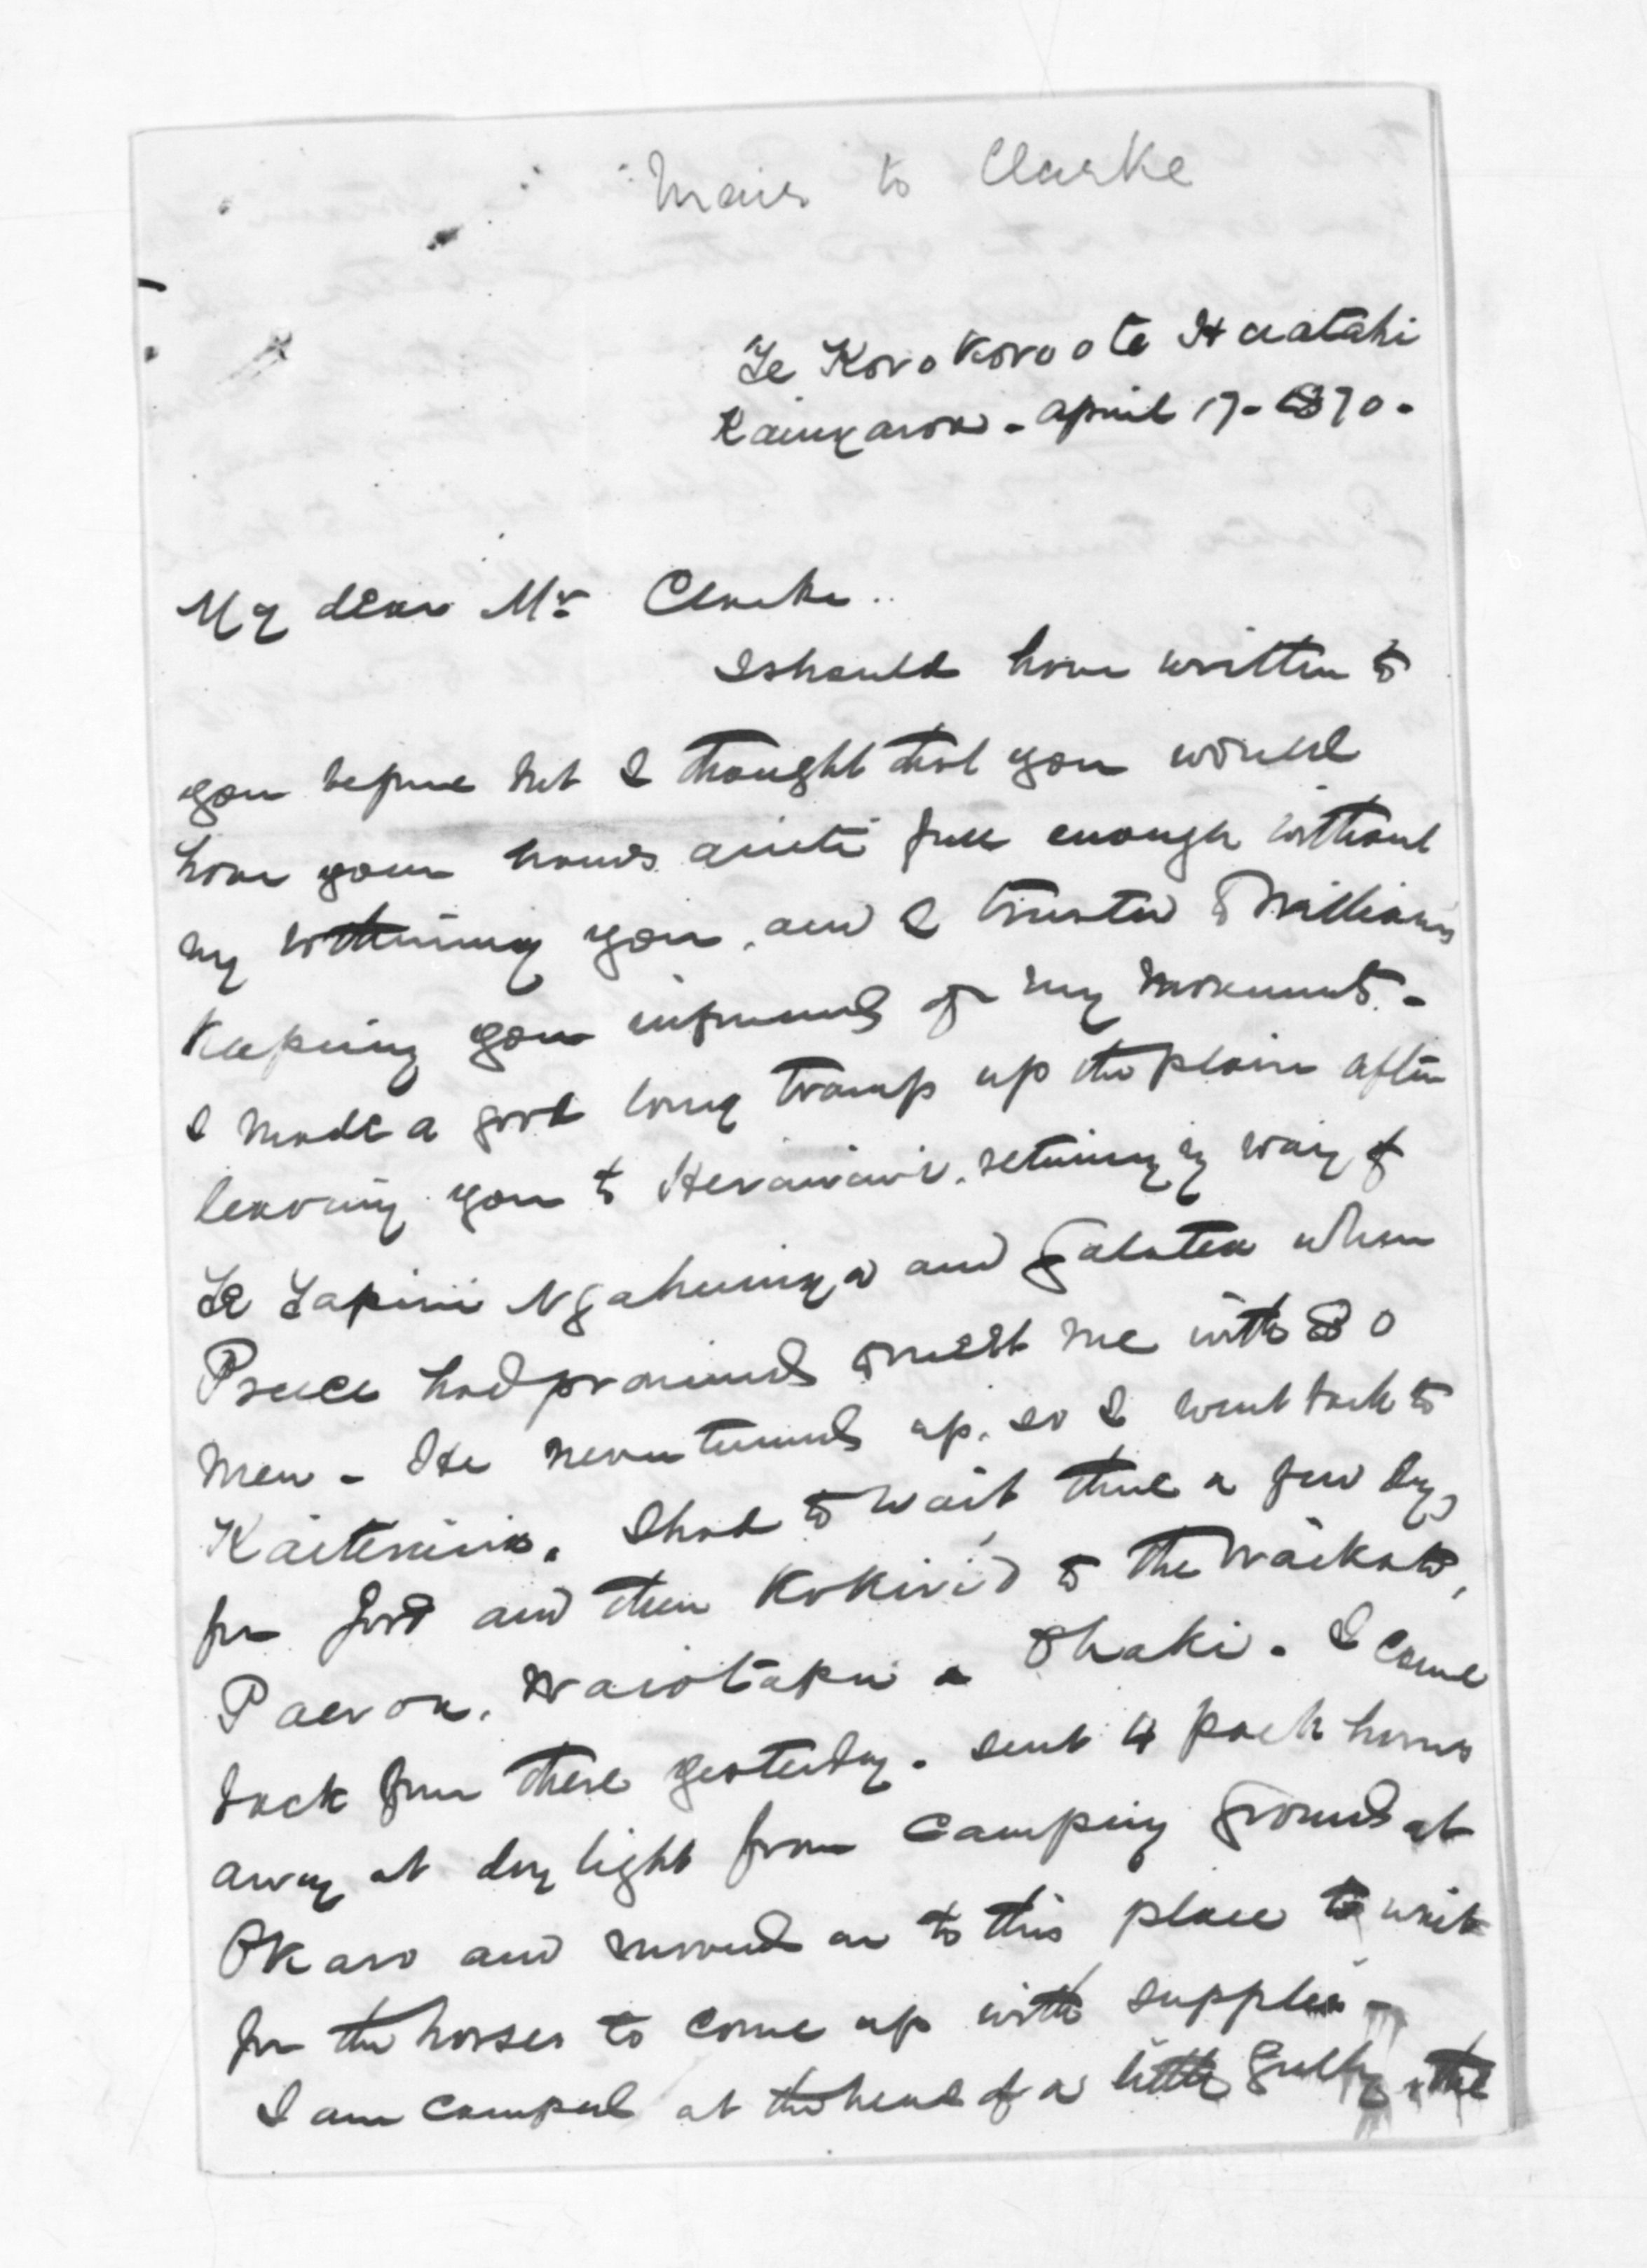 Mair to Clarke
Te Korokoro o te Huatahi
Kaingaroa - April 17 - 1870 -
My dear Mr Clarke..
I should have written to
you before but I thought that you would
have your hands quite full enough without
my bothering you, and I trusted to William's
keeping you informed of my movements. -
I made a good long tramp up the plain after
leaving you to Heruiwi, returning by way of
Te Tapiri Ngahuinga and Galatea where
Preece had promised to meet me with 80
men - He never turned up, so I went back to
Kaiteriria. I had to wait there a few days
for food and then Kokiri'd to the Waikato,
Paeroa, Waiotapu & Ohaki. I came
back from there yesterday. sent 4 pack horses
away at day light from camping ground at
Okaro and moved on to this place to wait
for the horses to come up with supplies -
I am camped at the head of a little gully, the